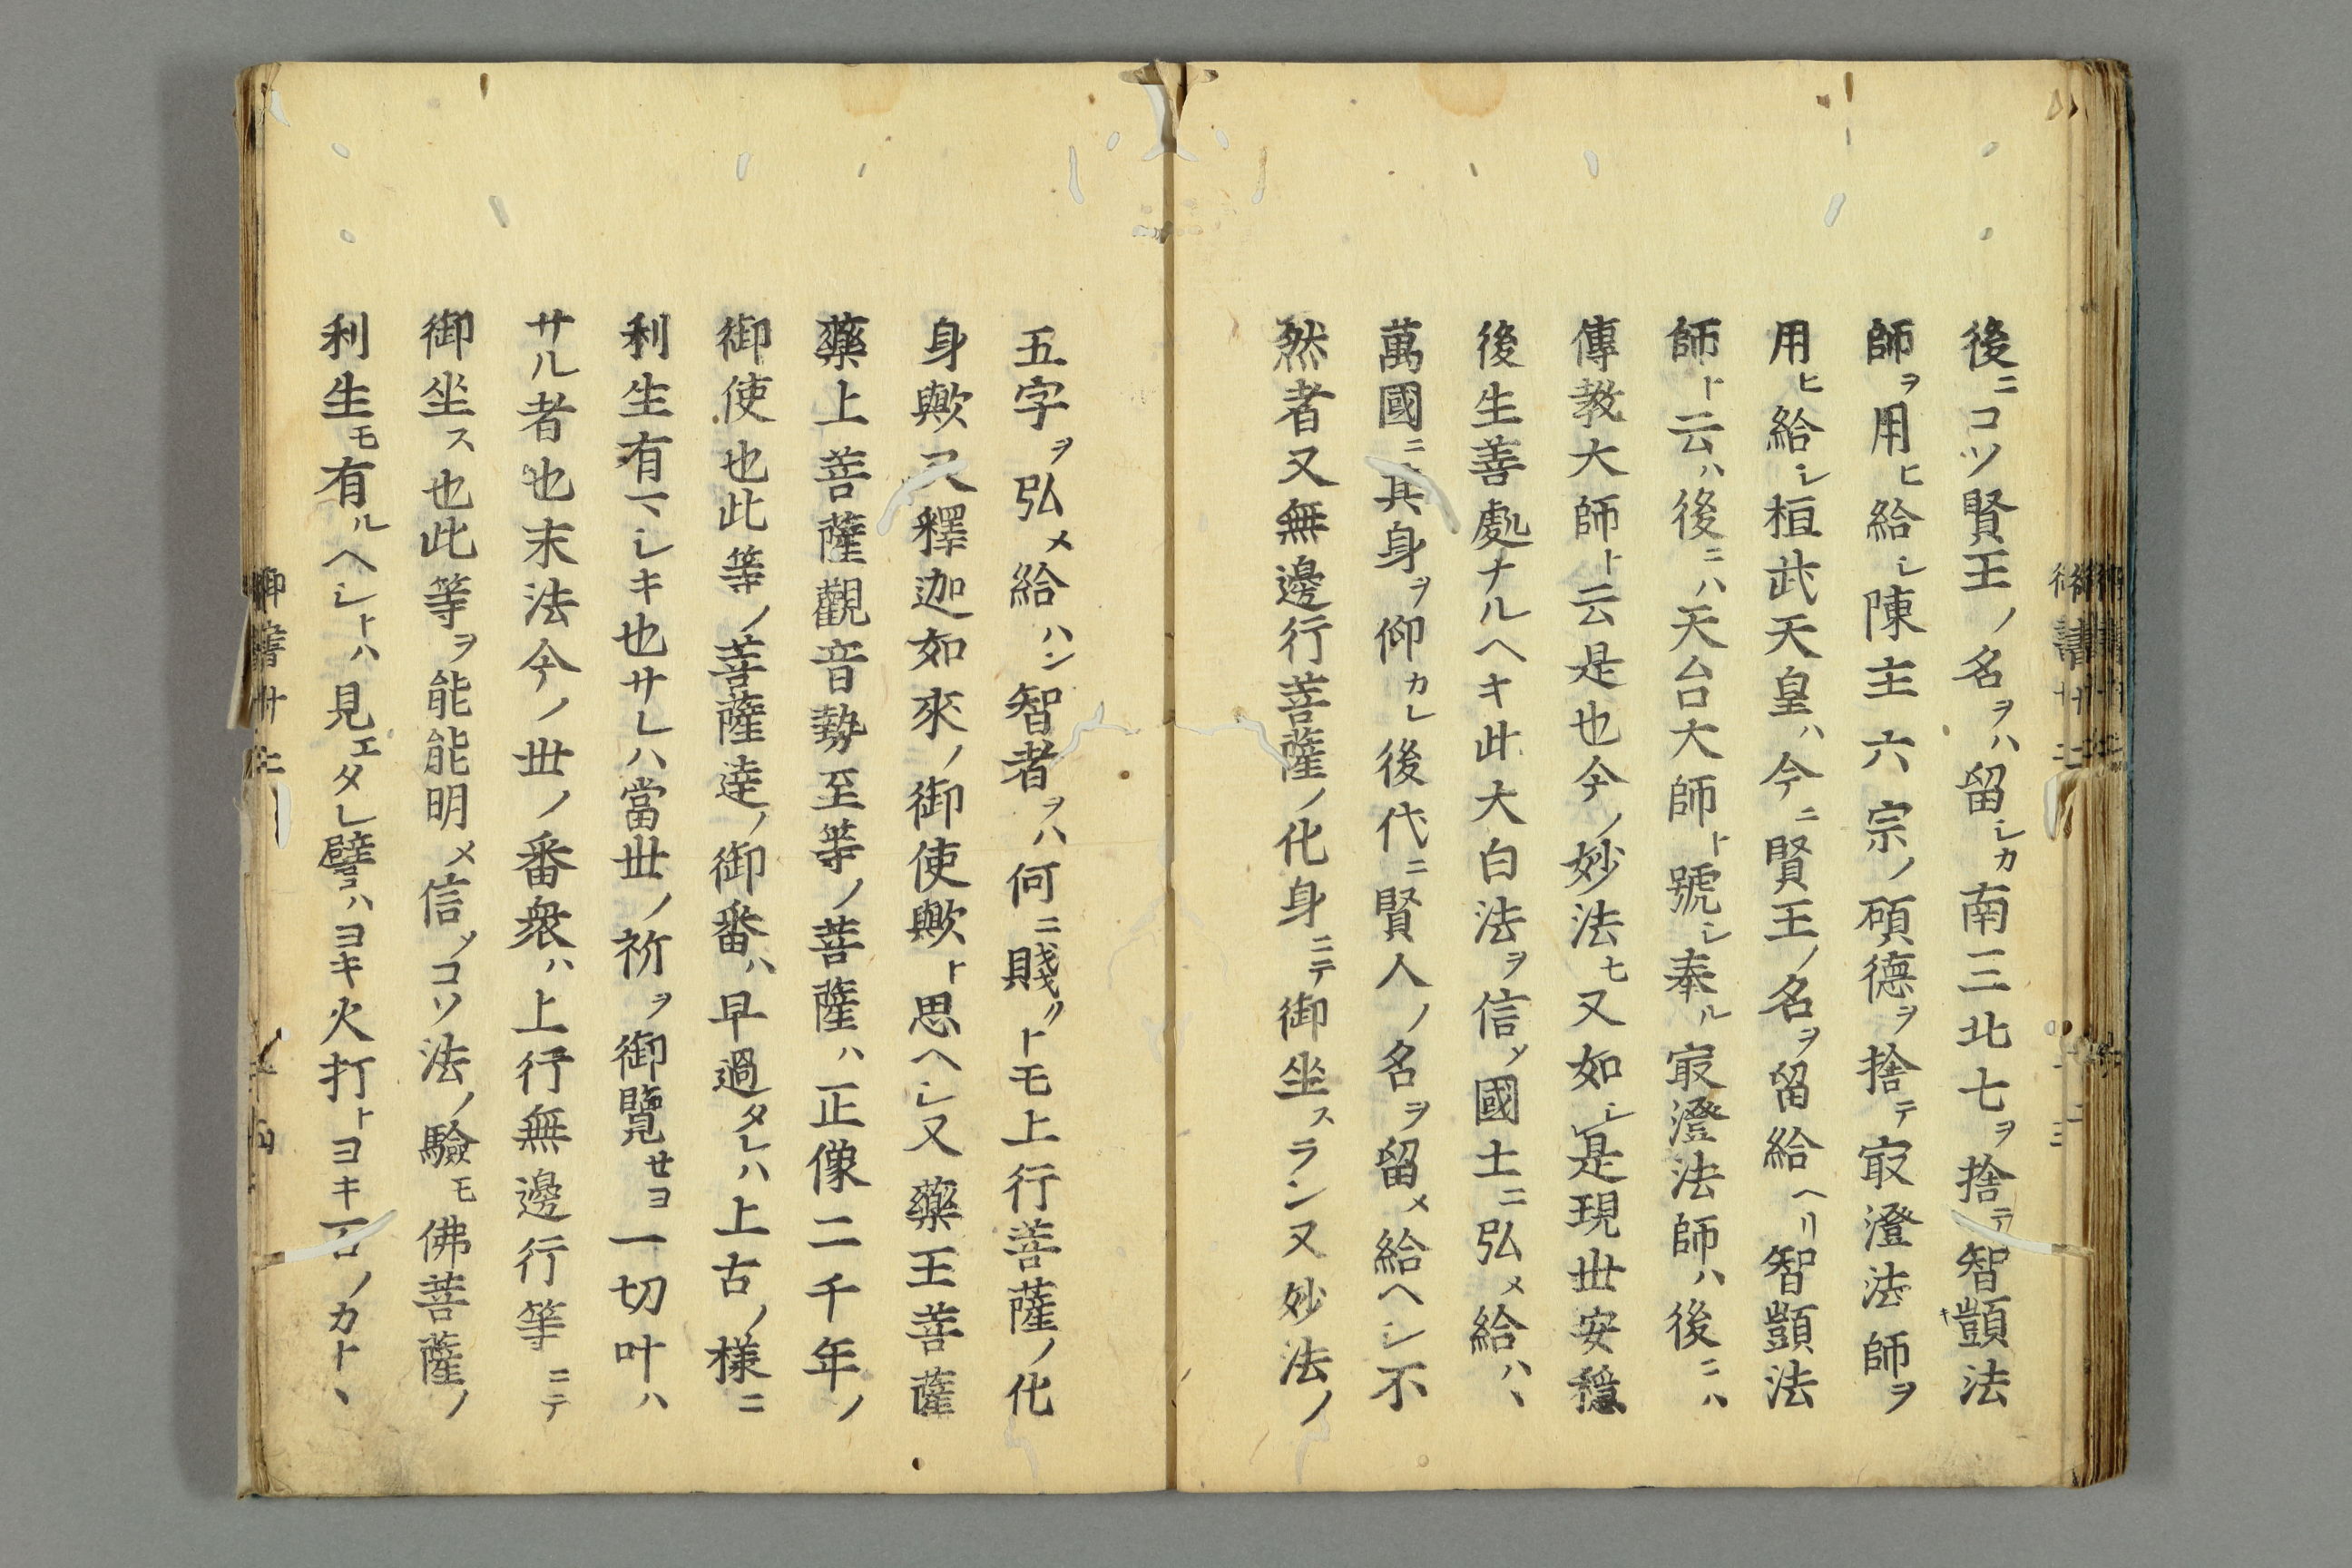 後ニコソ賢王ノ名ヲハ留シカ南三北七ヲ捨テ智顗法
師ヲ用ヒ給シ陳主六宗ノ碩德ヲ捨テ㝡澄法師ヲ
用ヒ給シ桓武天皇ハ今ニ賢王ノ名ヲ留給ヘリ智顗法
師ト云ハ後ニハ天台大師ト號シ奉ル㝡澄法師ハ後ニハ
傳教大師ト云是也今ノ妙法モ又如シ是現世安穏
後生善處ナルヘキ此大白法ヲ信ソ國土ニ弘メ給ハヽ
萬國ニ其身ヲ仰カレ後代ニ賢人ノ名ヲ留メ給ヘシ不
然者又無邊行菩薩ノ化身ニテ御坐スラン又妙法ノ
五字ヲ弘メ給ハン智者ヲハ何ニ賤クトモ上行菩薩ノ化
身歟又釋迦如來ノ御使歟ト思ヘシ又藥王菩薩
藥上菩薩觀音勢至等ノ菩薩ハ正像二千年ノ
御使也此等ノ菩薩達ノ御番ハ早過タレハ上古ノ様ニ
利生有マシキ也サレハ當世ノ祈ヲ御覽セヨ一切叶ハ
サル者也末法今ノ世ノ番衆ハ上行無邊行等ニテ
御坐ス也此等ヲ能能明メ信ソコソ法ノ驗モ佛菩薩ノ
利生モ有ルヘシトハ見エタレ譬ハヨキ火打トヨキ石ノカトヽ